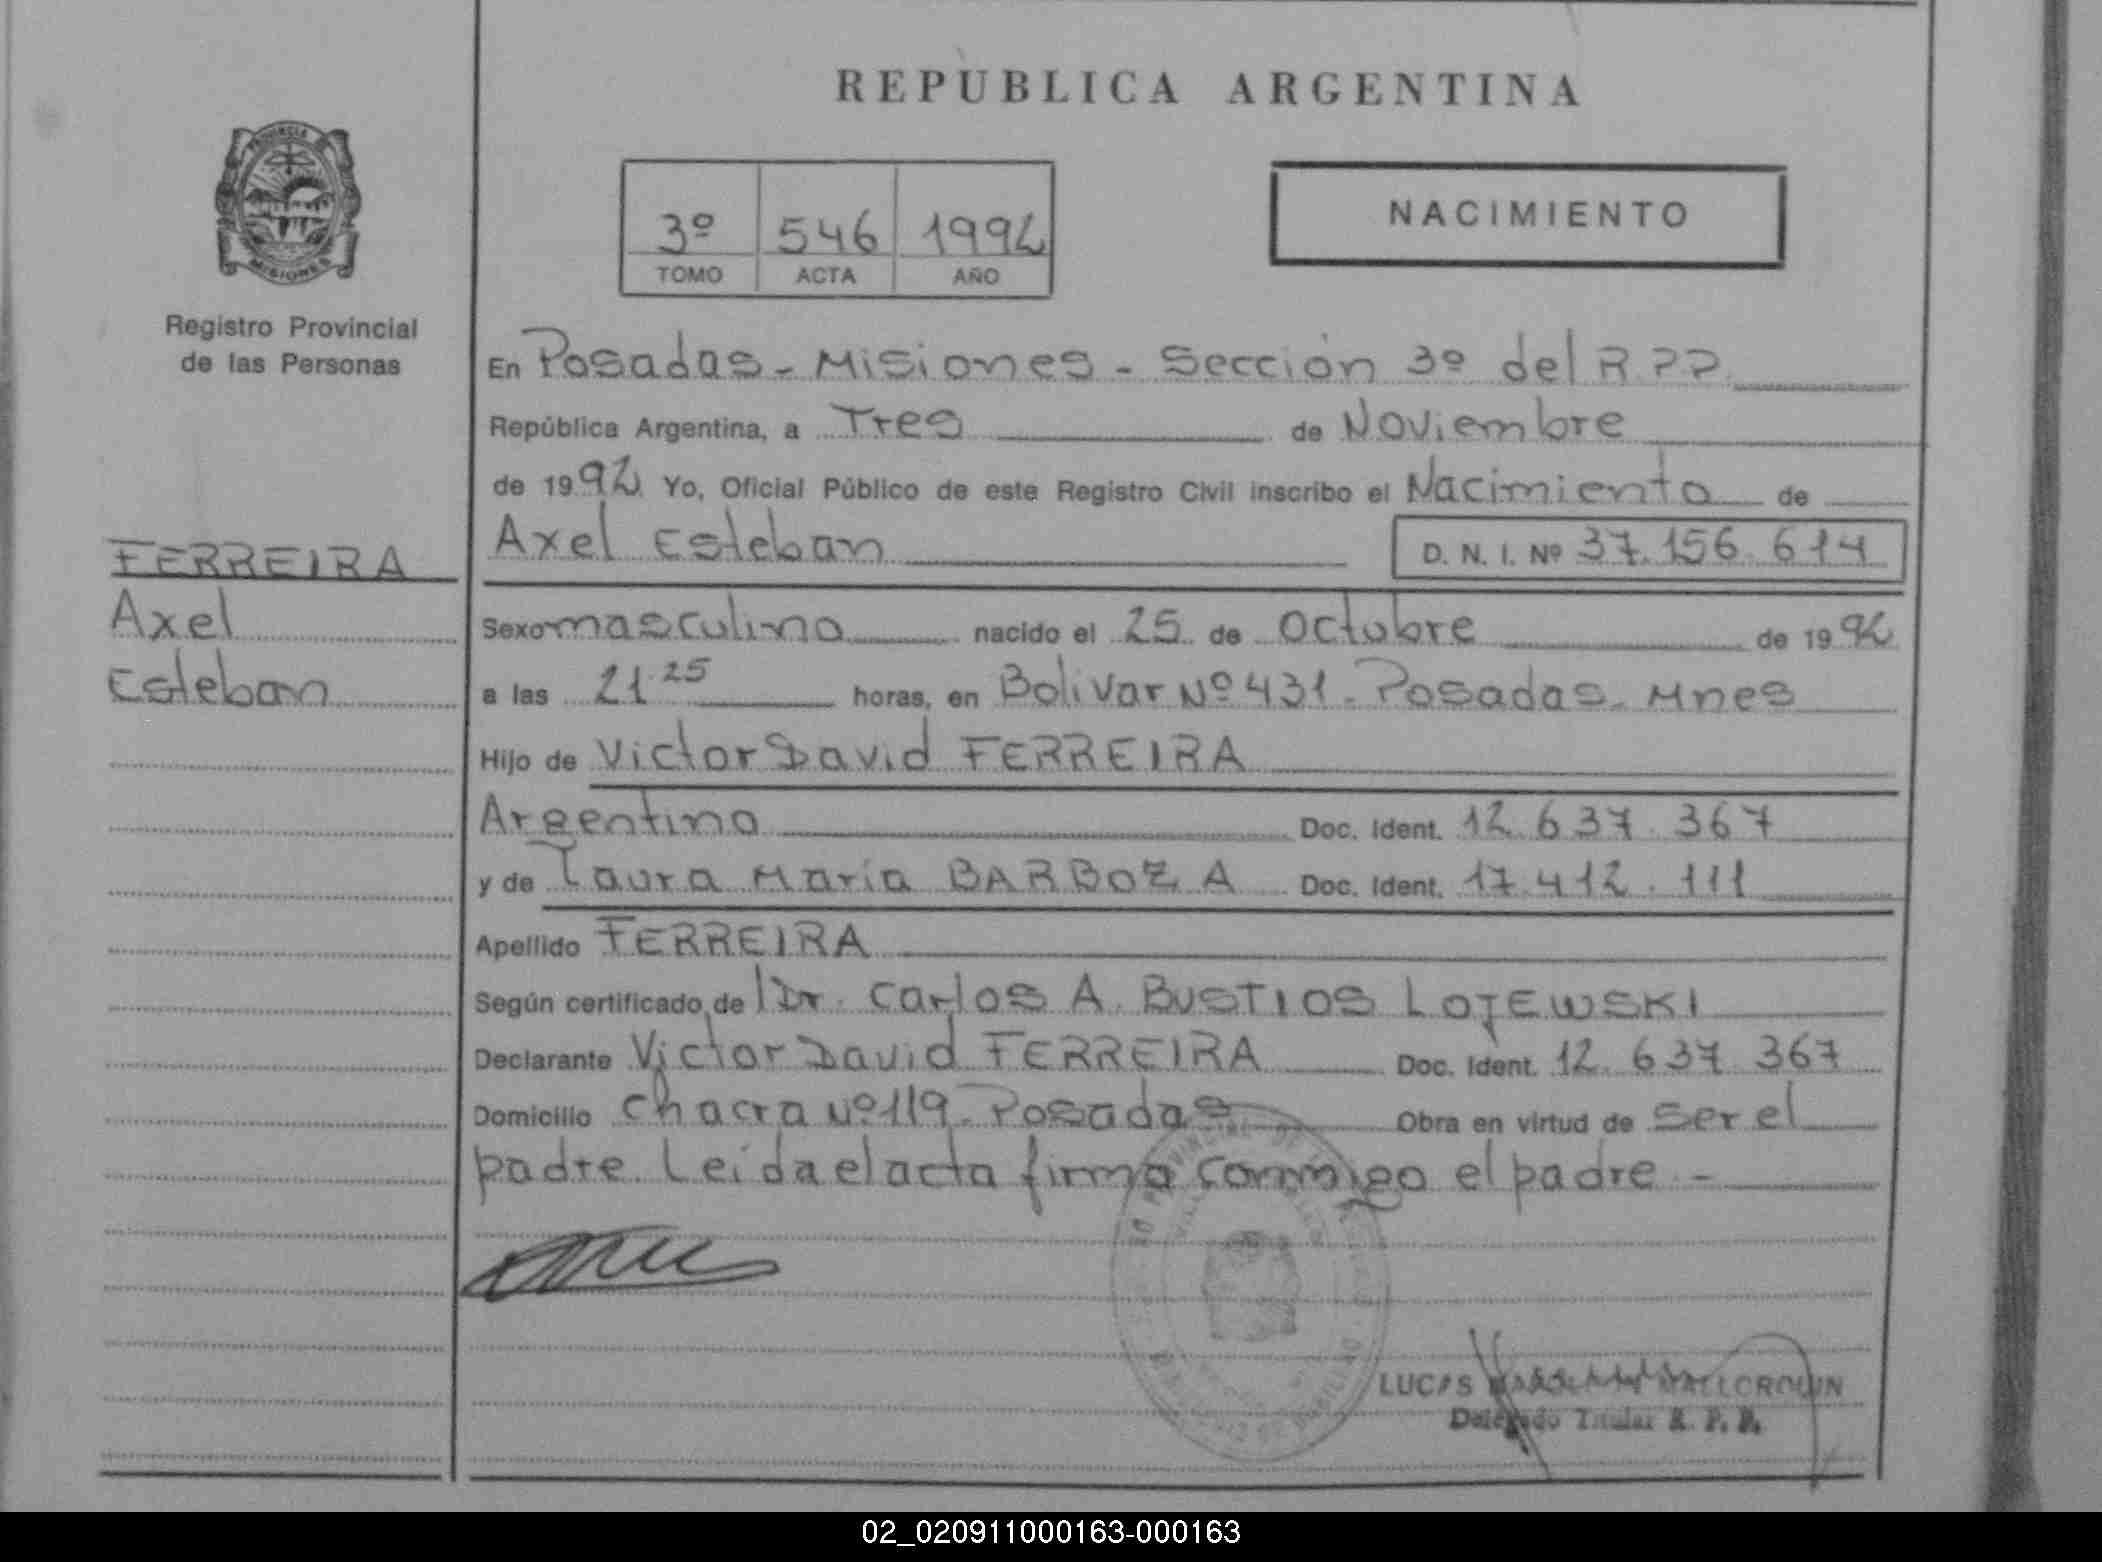 REPUBLICA ARGENTINA
PROVINCIA
MISIONES
Registro Provincial
de las Personas
3º 546 1992
TOMO ACTA AÑO
NACIMIENTO
En Posadas - Misiones - Sección 3º del R.P.P.
República Argentina, a Tres de Noviembre
de 1992 Yo, Oficial Público de este Registro Civil inscribo el Nacimiento de
Axel Esteban D. N. I. Nº 37.156.614
FERREIRA
Axel
Esteban
Sexo masculino nacido el 25 de Octubre de 1992
a las 21.25 horas, en Bolivar Nº 431 - Posadas - Mnes
Hijo de Victor David FERREIRA
Argentino Doc. Ident. 12.637.367
y de Laura Maria BARBOZA Doc. Ident. 17.412.111
Apellido FERREIRA
Según certificado de Dr. Carlos A. BUSTIOS LOJEWSKI
Declarante Victor David FERREIRA Doc. Ident. 12.637.367
Domicilio Chacra Nº 119 - Posadas Obra en virtud de ser el
padre. Leida el acta firma conmigo el padre -
LUCAS MALLORQUIN
Delegado Titular R. P. P.
02_020911000163-000163